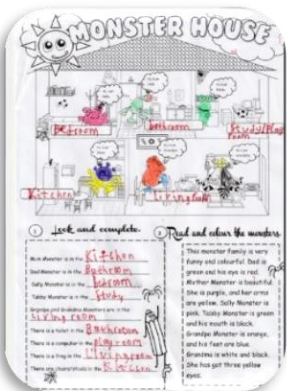 MONSTER HOUSE
Bedroom
bathroom
Study/Play
room
Kitchen
livingroom
1 Look and complete.
2 Read and colour the monsters.
Mum Monster is in the Kitchen
Dad Monster is in the Bathroom
Sally Monster is in the bedroom
Tabby Monster is in the Study
Grandpa and Grandma Monsters are in the
living room
There is a toilet in the Bathroom
There is a computer in the playroom
There is a frog in the Livingroom
There are chairs/stools in the Kitchen
This monster family is very
funny and colourful. Dad is
green and his eye is red.
Mother Monster is beautiful.
She is purple, and her arms
are yellow. Sally Monster is
pink. Tabby Monster is green
and his mouth is black.
Grandpa Monster is orange,
and his feet are blue.
Grandma is white and black.
She has got three yellow
eyes.